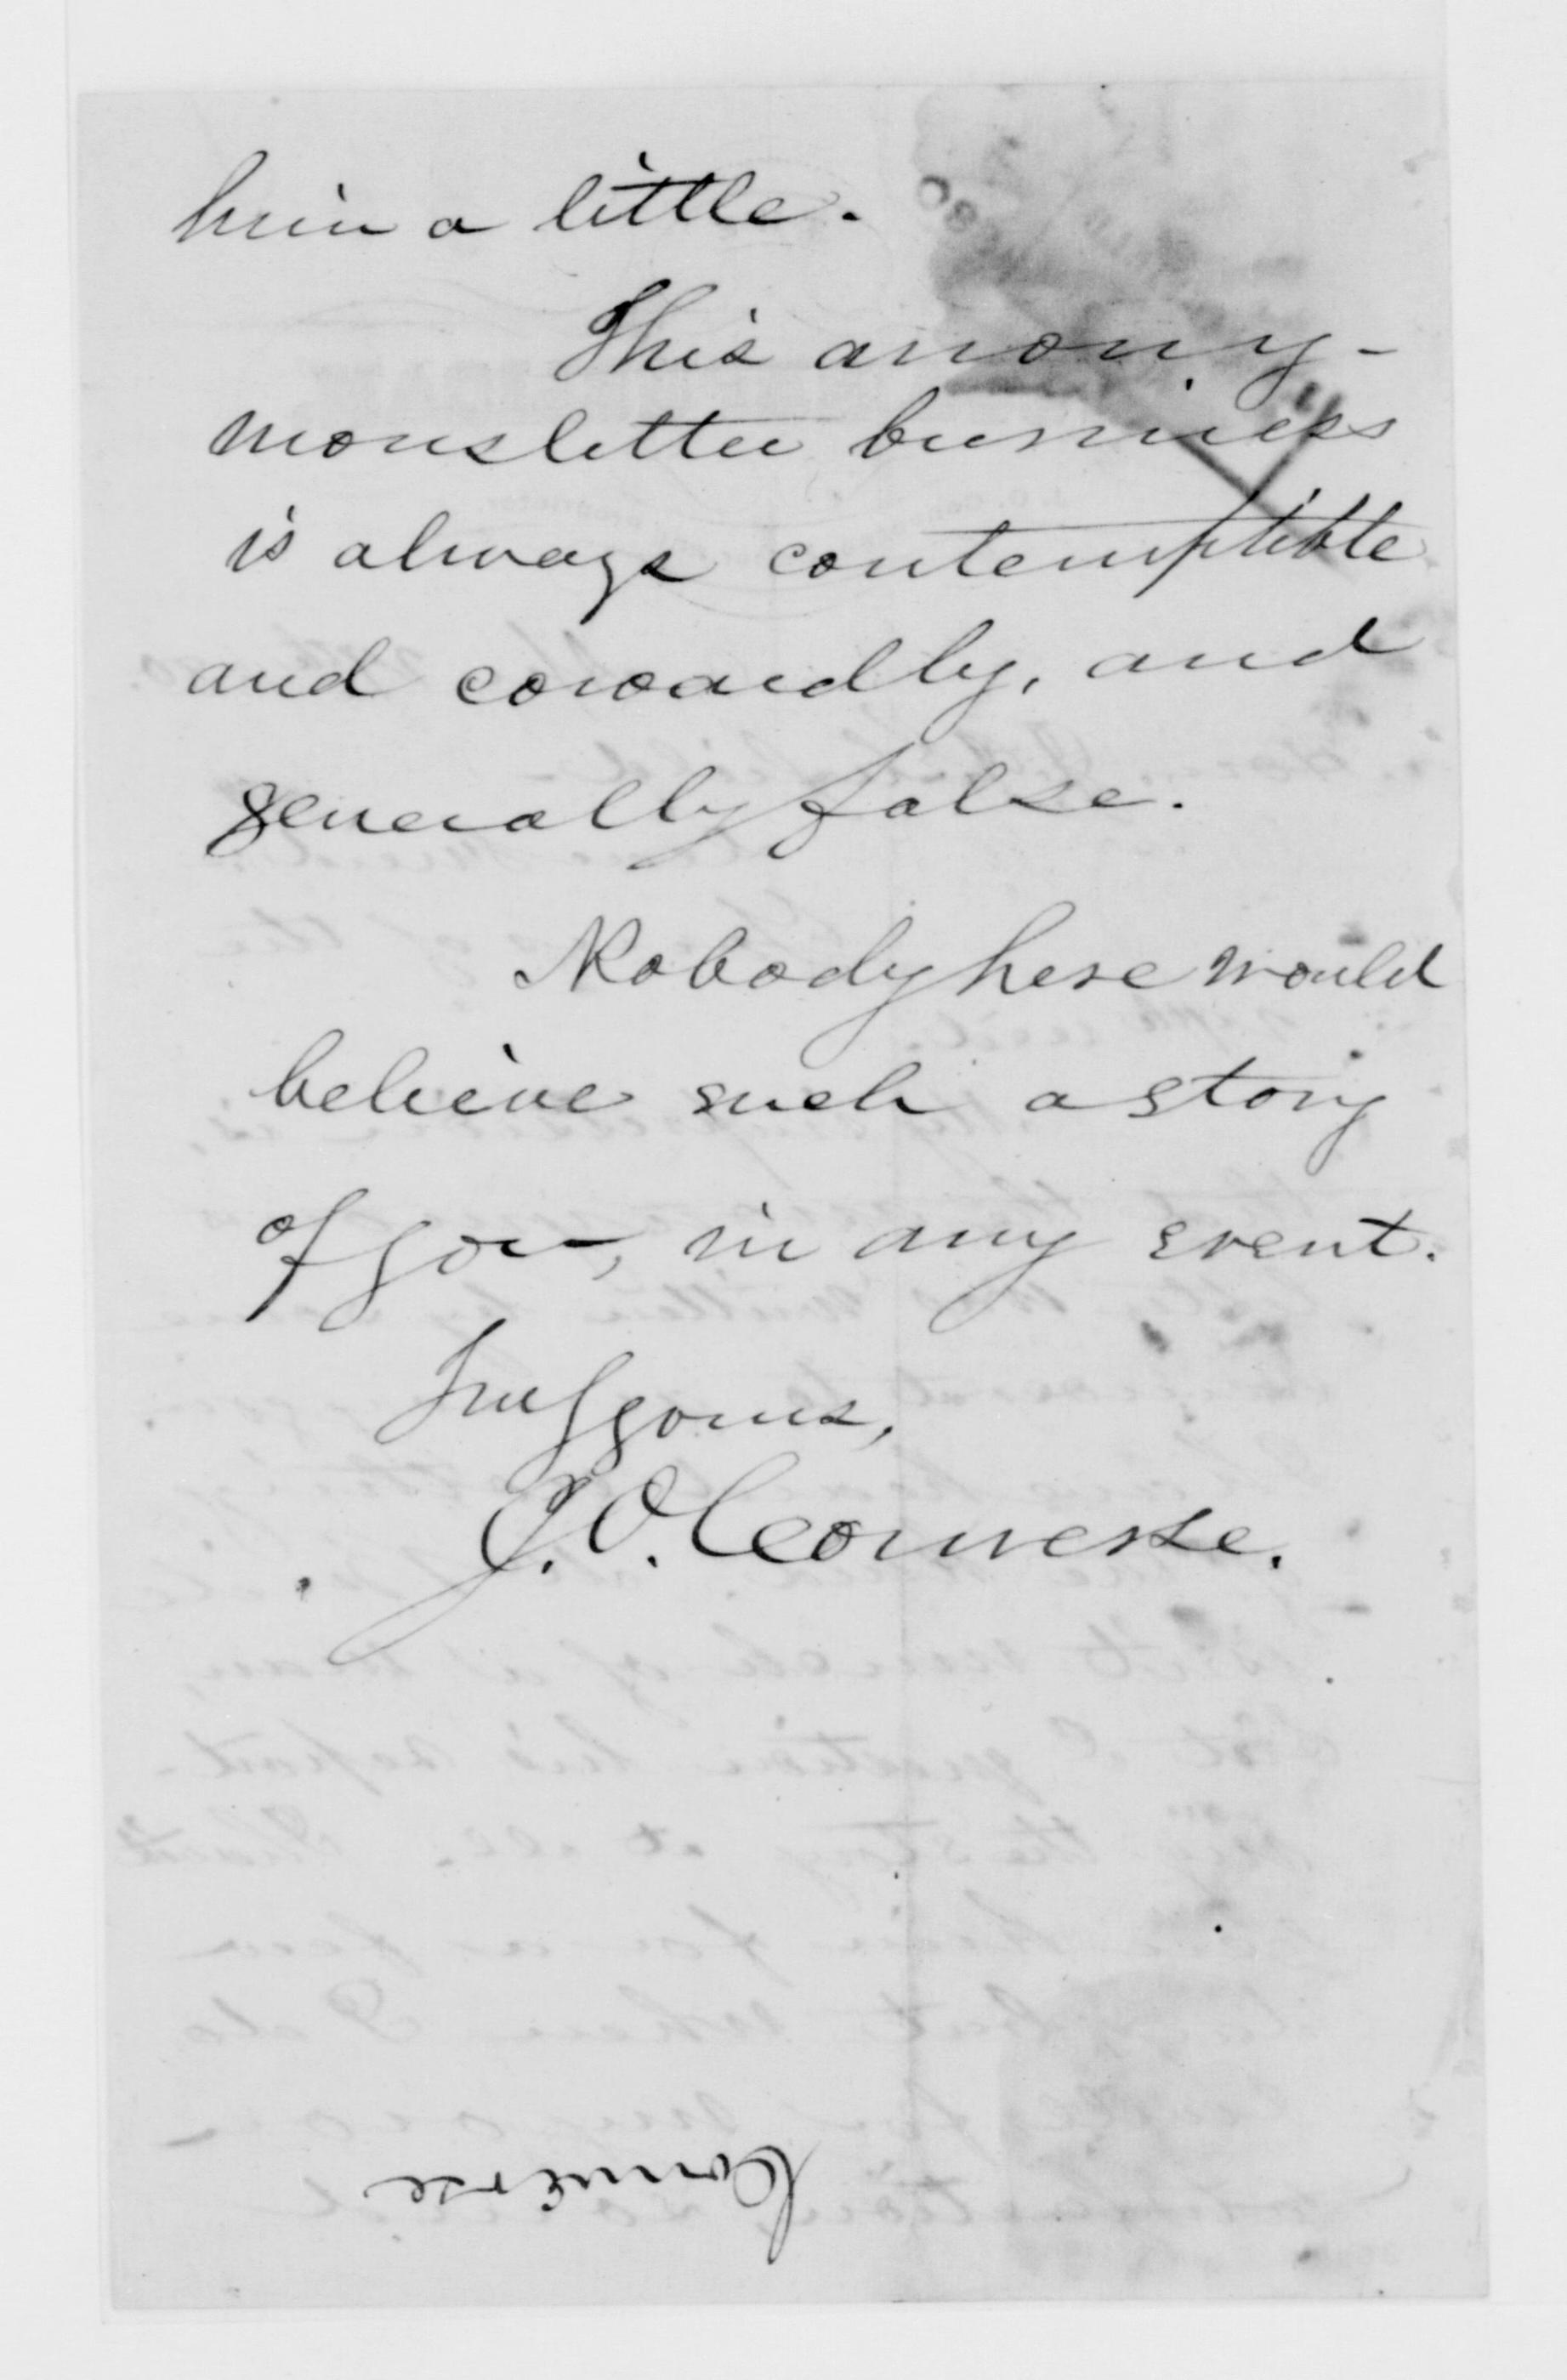 him a little.
This anony-
mous letter business
is always contemptible
and cowardly, and
generally false.
Nobody here would
believe such a story
of you, in any event.
Truly yours,
J. O. Converse.
Converse